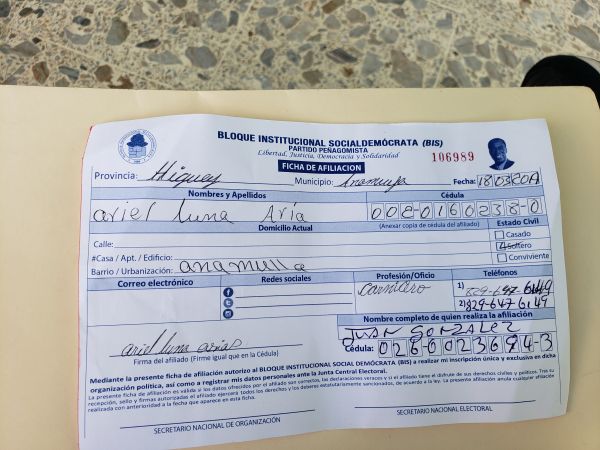 BLOQUE INSTITUCIONAL SOCIALDEMÓCRATA (BIS)
PARTIDO PEÑAGOMISTA
Libertad, Justicia, Democracia y Solidaridad
106989
FICHA DE AFILIACION
Provincia: Higuey Municipio: Fecha: 18 03
Nombres y Apellidos Cédula
ariel luna Aria 002-0160238-0
(Anexar copia de cédula del afiliado)
Domicilio Actual Estado Civil
Calle: Casado
#Casa / Apt. / Edificio: Soltero
Barrio / Urbanización: anamulla Conviviente
Correo electrónico Redes sociales Profesión/Oficio Teléfonos
1) 829-647-6149
2) 829-647 6149
Nombre completo de quien realiza la afiliación
JUAN GONZALEZ
ariel luna arias Cédula: 026-0023694-3
Firma del afiliado (Firme igual que en la Cédula)
Mediante la presente ficha de afiliación autorizo al BLOQUE INSTITUCIONAL SOCIAL DEMÓCRATA (BIS) a realizar mi inscripción única y exclusiva en dicha
organización política, así como a registrar mis datos personales ante la Junta Central Electoral.
La presente ficha de afiliación es válida si los datos ofrecidos por el afiliado son correctos, las declaraciones veraces y si el afiliado tiene el disfrute de sus derechos civiles y políticos. Tras su
recepción, sello y firmas autorizadas el afiliado ejercerá todos los derechos y los deberes estatutariamente sancionados, de acuerdo a la ley. La presente afiliación anula cualquier afiliación
realizada con anterioridad a la fecha que aparece en esta ficha.
SECRETARIO NACIONAL DE ORGANIZACIÓN SECRETARIO NACIONAL ELECTORAL